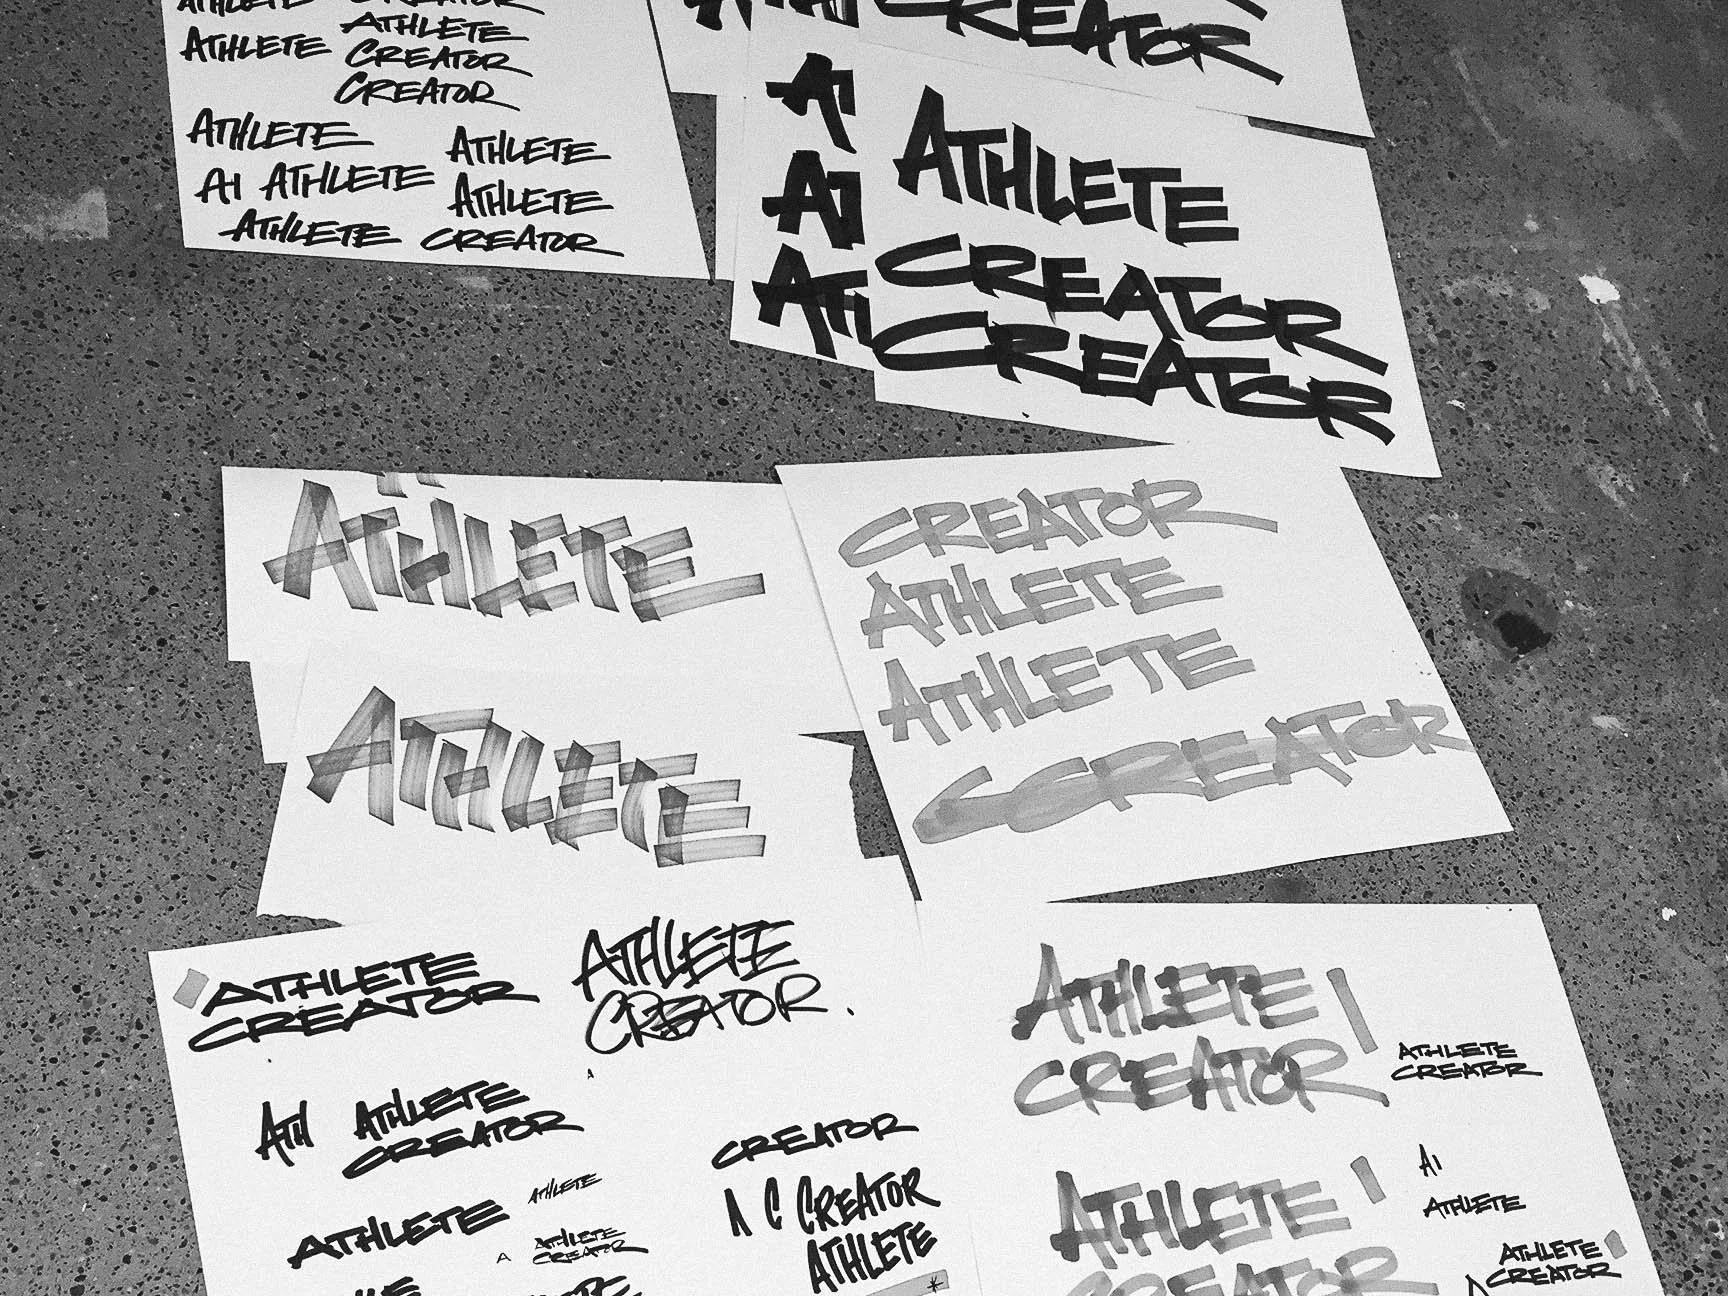 ATHLETE CREATOR
ATHLETE ATHLETE
CREATOR
CREATOR
ATHLETE ATHLETE
AI ATHLETE ATHLETE
ATHLETE CREATOR
ATH CREATOR
AT
AT
ATH
ATHLETE
CREATOR
CREATOR
ATHLETE
ATHLETE
CREATOR
ATHLETE
ATHLETE
CCREATOR
ATHLETE
CREATOR
ATHLETE
CREATOR.
A
ATH ATHLETE
CREATOR
ATHLETE
ATHLETE
A ATHLETE
CREATOR
CREATOR
A C CREATOR
ATHLETE
ATHLETE
CREATOR
ATHLETE
CREATOR
ATHLETE
CREATOR
AI
ATHLETE
ATHLETE
CREATOR